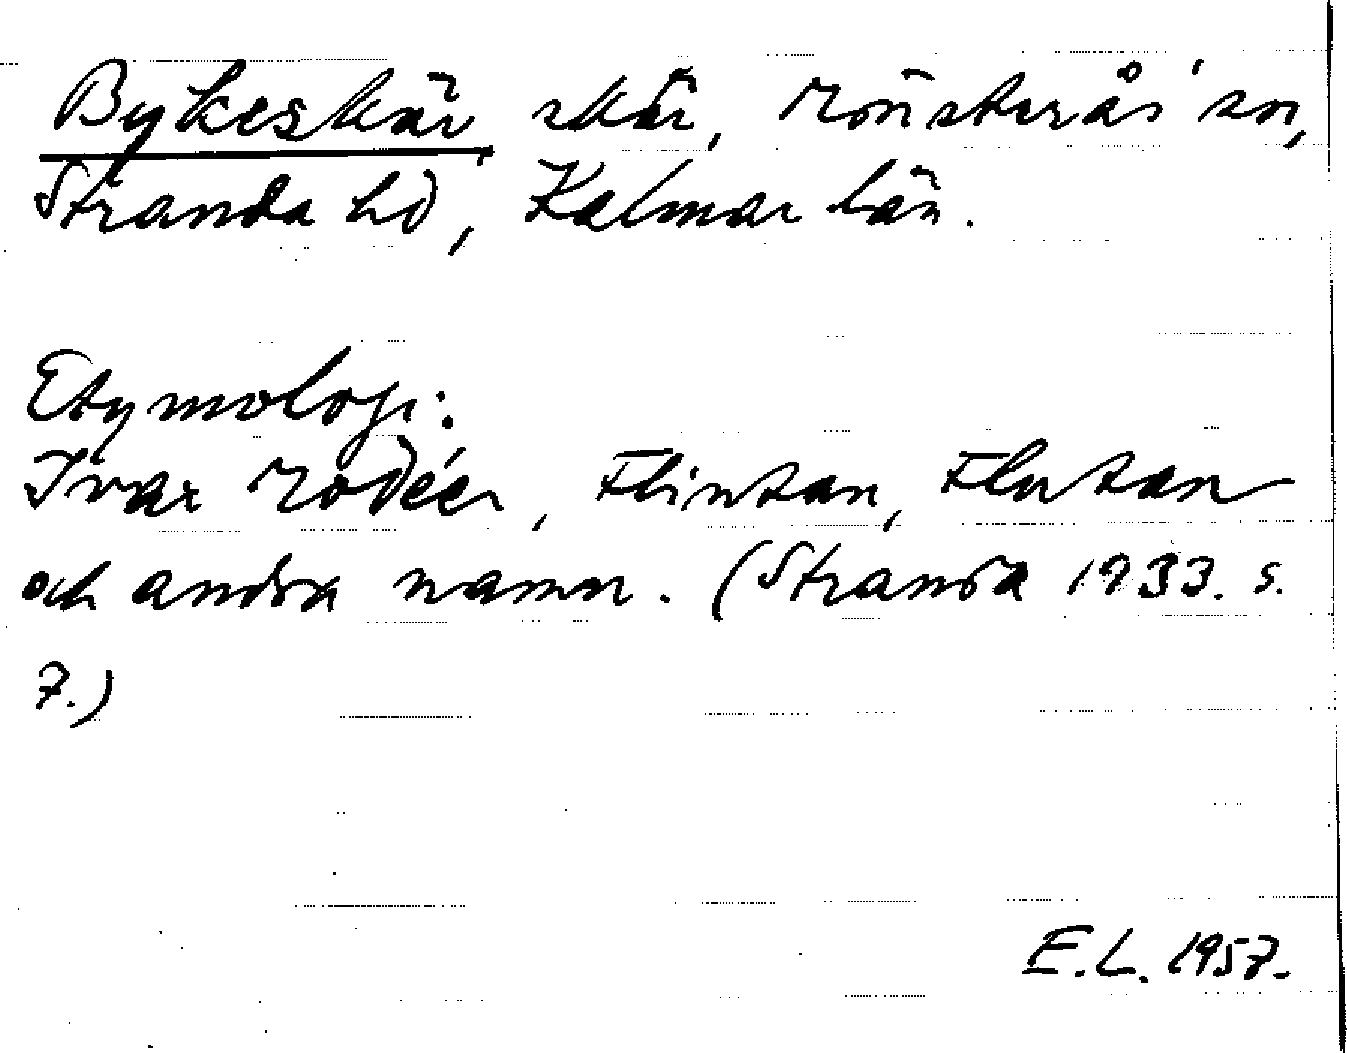 Bykeskär, skär, Mönsterås sn,
Stranda hd, Kalmar län.
Etymologi:
Ivar Modéer, Flintan, Flutan
och andra namn. (Stranda 1933. s.
7.)
E.L. 1957.